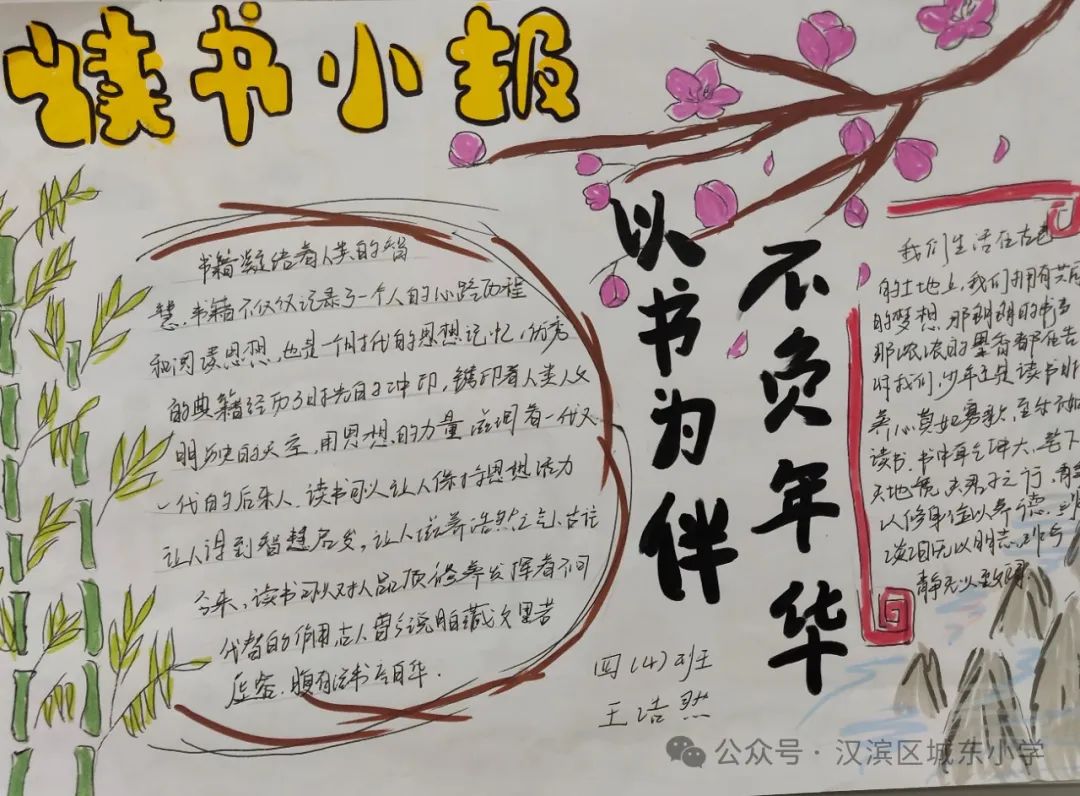 读书小报
书籍凝结着人类的智
慧,书籍不仅仅记录了一个人的心路历程
和阅读思想,也是一个时代的思想记忆,优秀
的典籍经历了时光的冲印,镌印着人类人文
明历史的天空,用思想的力量滋润着一代又
一代的后来人,读书可以让人保持思想活力
让人得到智慧启发,让人滋养浩然之气,古往
今来,读书可以对人品质修养发挥着不同
代替的作用古人曾说胸藏文墨若
虚谷,腹有诗书气自华.
以书为伴
不负年华
我们生活在古老
的土地上,我们拥有共同
的梦想,那朗朗的书声
那浓浓的墨香都在告
诉我们,少年正是读书时
养心莫如寡欲,至乐无如
读书.书中乾坤大,笔下
天地宽,夫君子之行,静
以修身俭以养德,非
淡泊无以明志,非宁
静无以致远.
四(4)班
王浩然
公众号·汉滨区城东小学